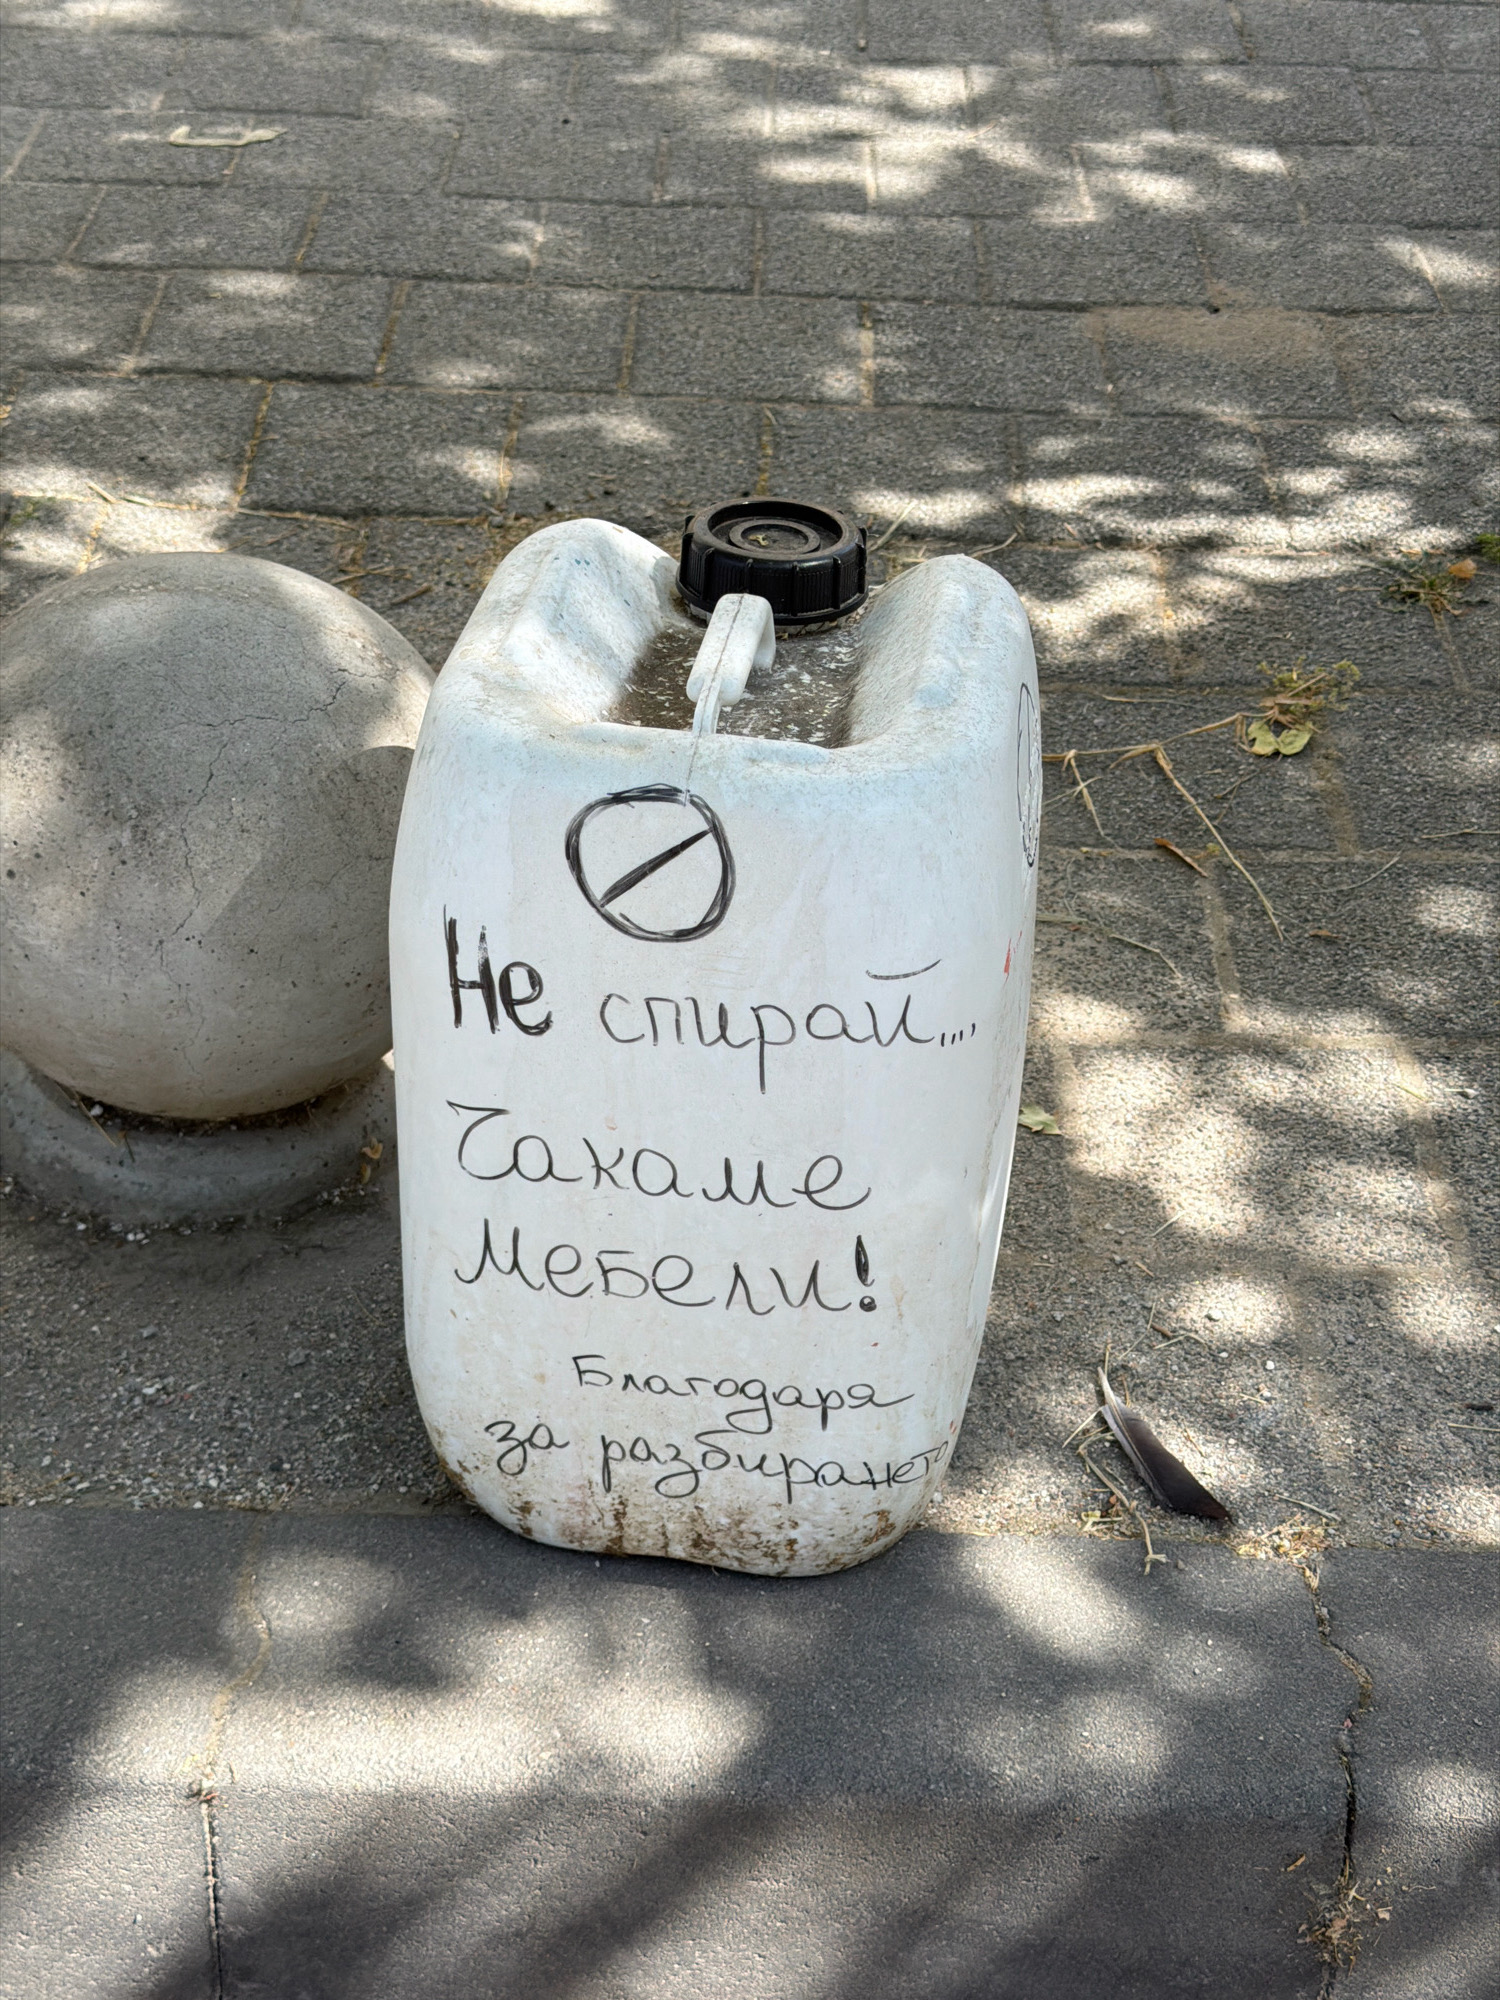 Не спирай....
Чакаме
мебели!
Благодаря
за разбирането